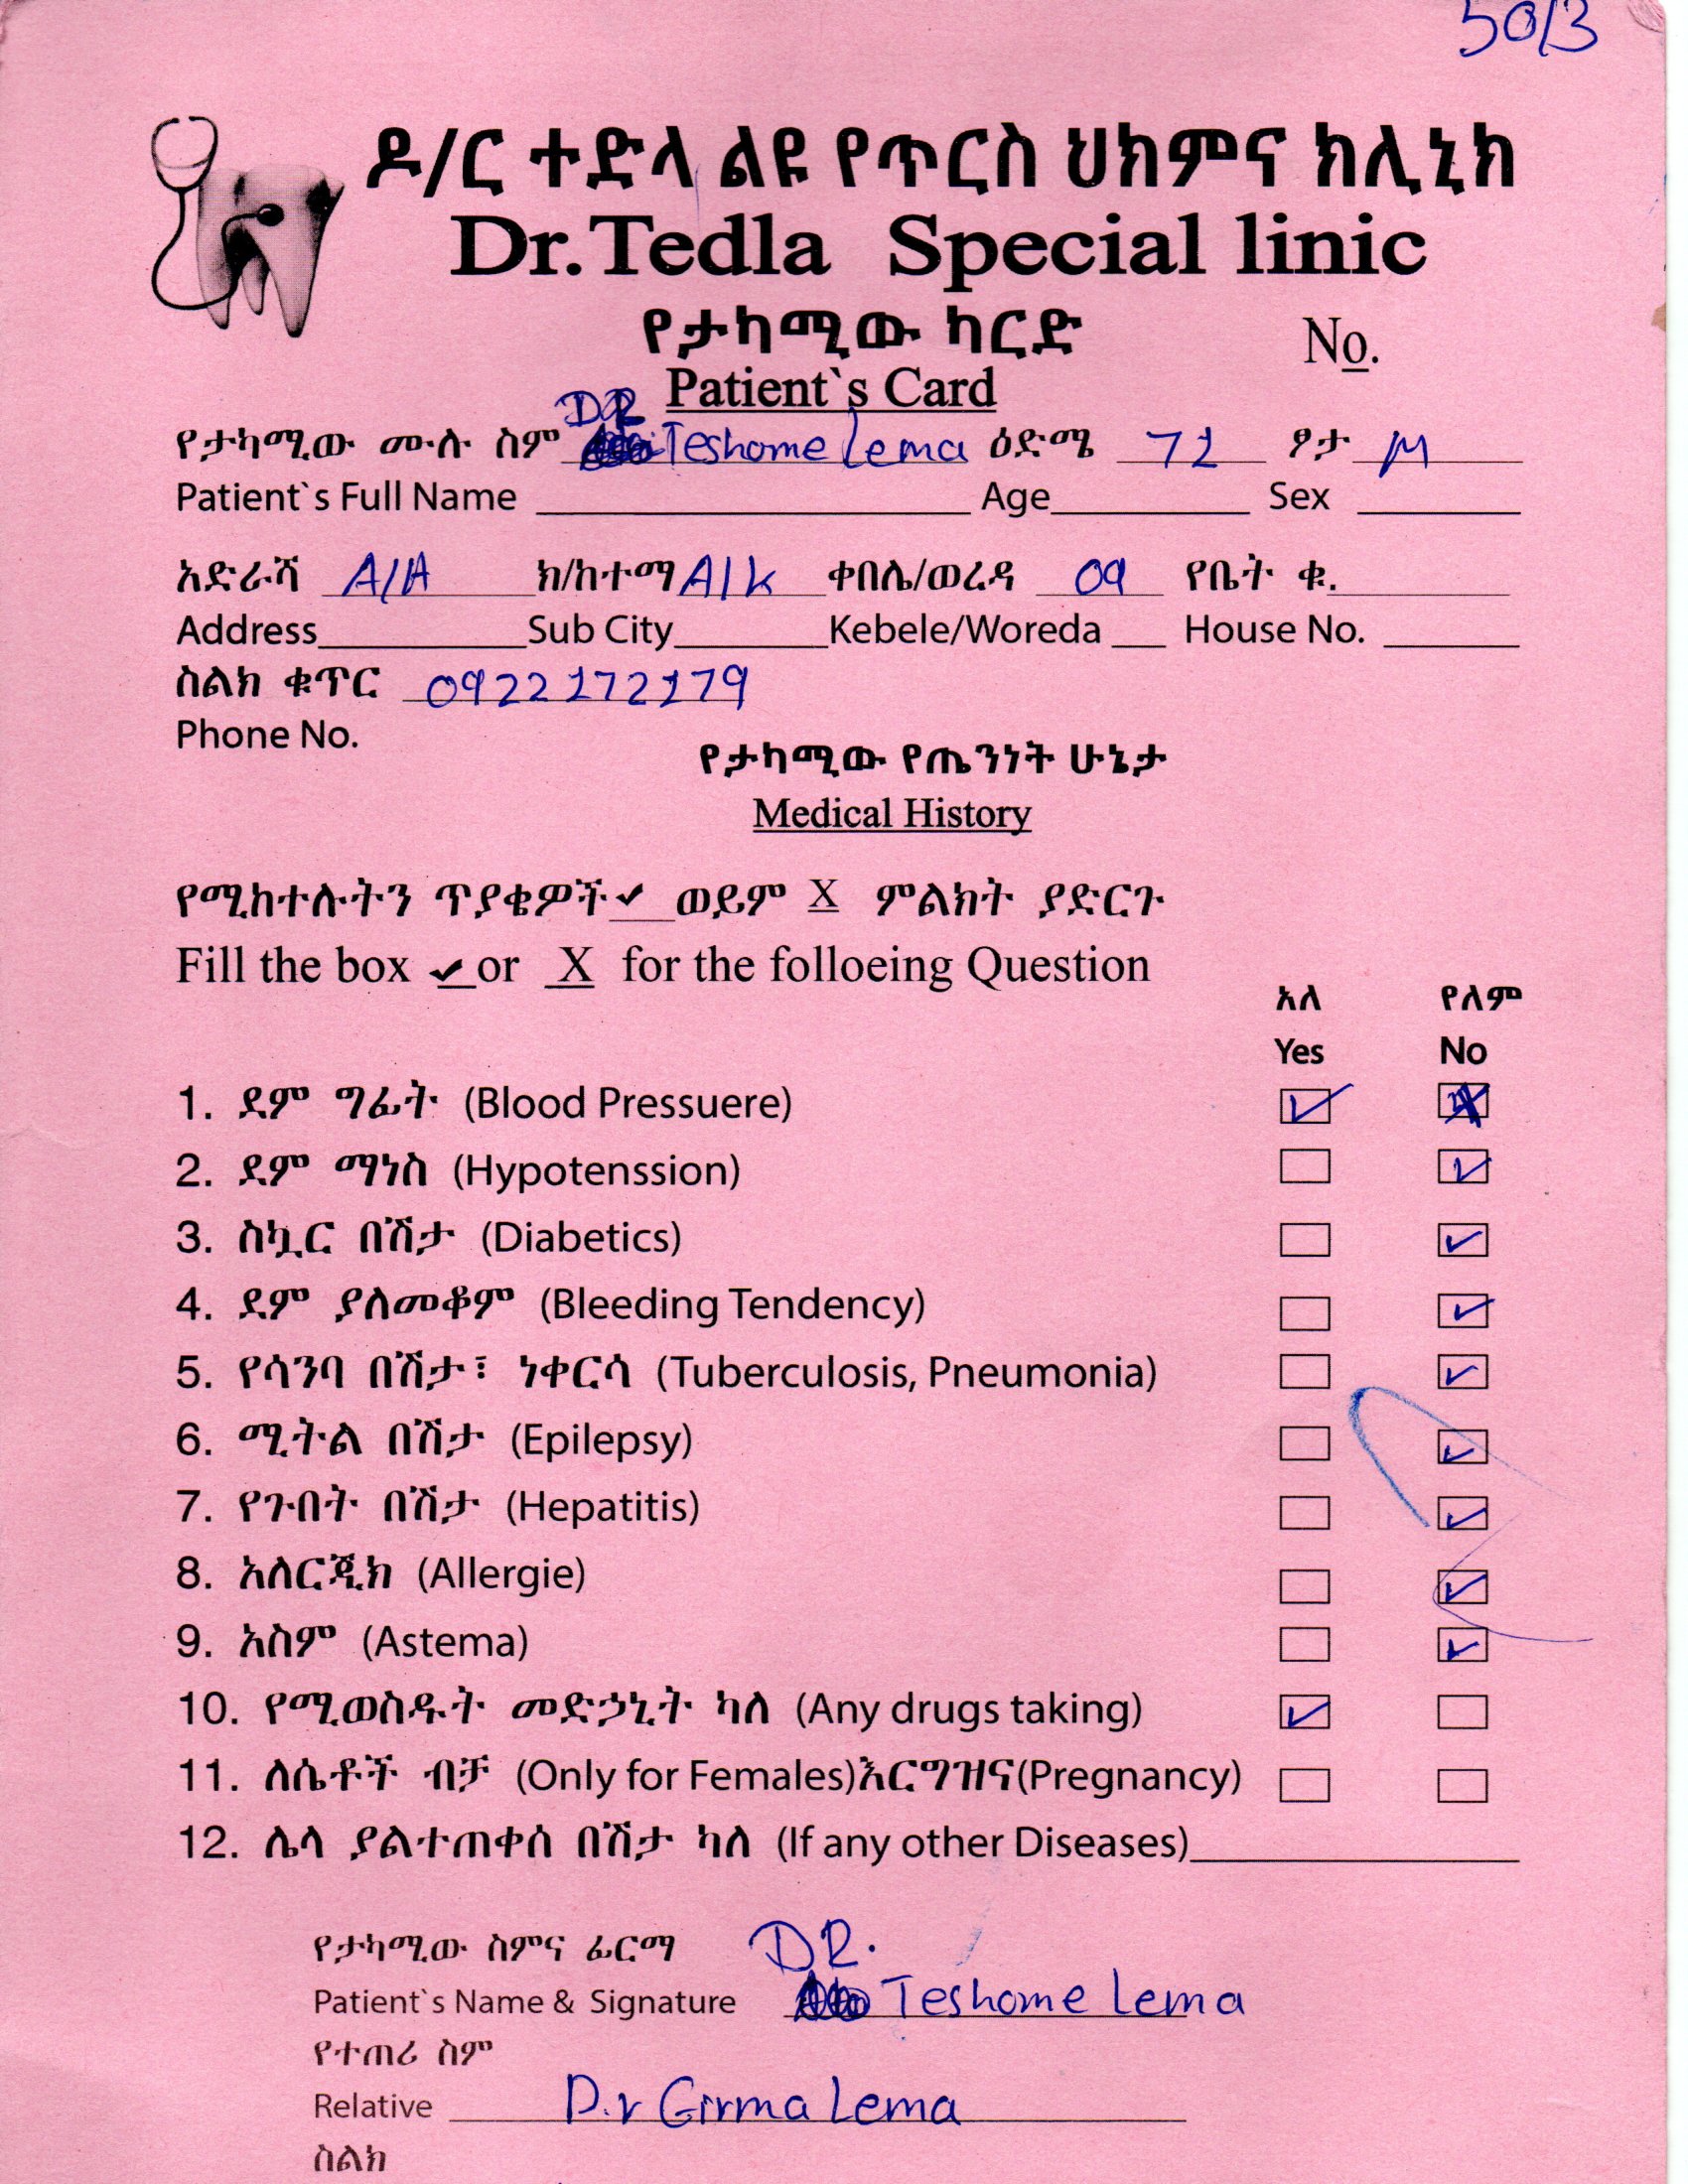 5013
ዶ/ር ተድላ ልዩ የጥርስ ህክምና ክሊኒክ
Dr.Tedla Special linic
የታካሚው ካርድ No.
Patient`s Card
DR
የታካሚው ሙሉ ስም Teshome Lema ዕድሜ 72 ፆታ M
Patient`s Full Name Age Sex
አድራሻ A/A ክ/ከተማ A/K ቀበሌ/ወረዳ 09 የቤት ቁ.
Address Sub City Kebele/Woreda House No.
ስልክ ቁጥር 0922172179
Phone No.
የታካሚው የጤንነት ሁኔታ
Medical History
የሚከተሉትን ጥያቄዎች ✓ ወይም X ምልክት ያድርጉ
Fill the box ✓ or X for the folloeing Question
አለ የለም
Yes No
1. ደም ግፊት (Blood Pressuere) ✓ X
2. ደም ማነስ (Hypotenssion) ✓
3. ስኳር በሽታ (Diabetics) ✓
4. ደም ያለመቆም (Bleeding Tendency) ✓
5. የሳንባ በሽታ፣ ነቀርሳ (Tuberculosis, Pneumonia) ✓
6. ሚትል በሽታ (Epilepsy) ✓
7. የጉበት በሽታ (Hepatitis) ✓
8. አለርጂክ (Allergie) ✓
9. አስም (Astema) ✓
10. የሚወስዱት መድኃኒት ካለ (Any drugs taking) ✓
11. ለሴቶች ብቻ (Only for Females)እርግዝና(Pregnancy)
12. ሌላ ያልተጠቀሰ በሽታ ካለ (If any other Diseases)
የታካሚው ስምና ፊርማ DR.
Patient`s Name & Signature Teshome Lema
የተጠሪ ስም
Relative D.r Girma Lema
ስልክ